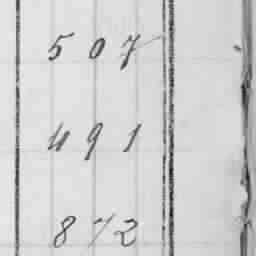 507
491
872